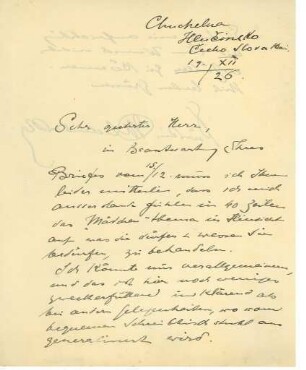 Chuchelna
Hlučinsko
Cecho Slovakei
19. XII
26
Sehr geehrter Herr,
in Beantwortung Ihres
Briefes vom 15/12 muss ich Ihnen
leider mitteilen, dass ich mich
ausserstande fühle in 40 Zeilen
das Mädchen thema im Hinsicht
auf was sie dürfen u wessen sie
bedürfen, zu behandeln.
Ich könnte nur verallgemeinern,
und das ich hier noch weniger
u klärend als
bei andern gelegenheiten, wo vom
bequemen
generalisiert wird.